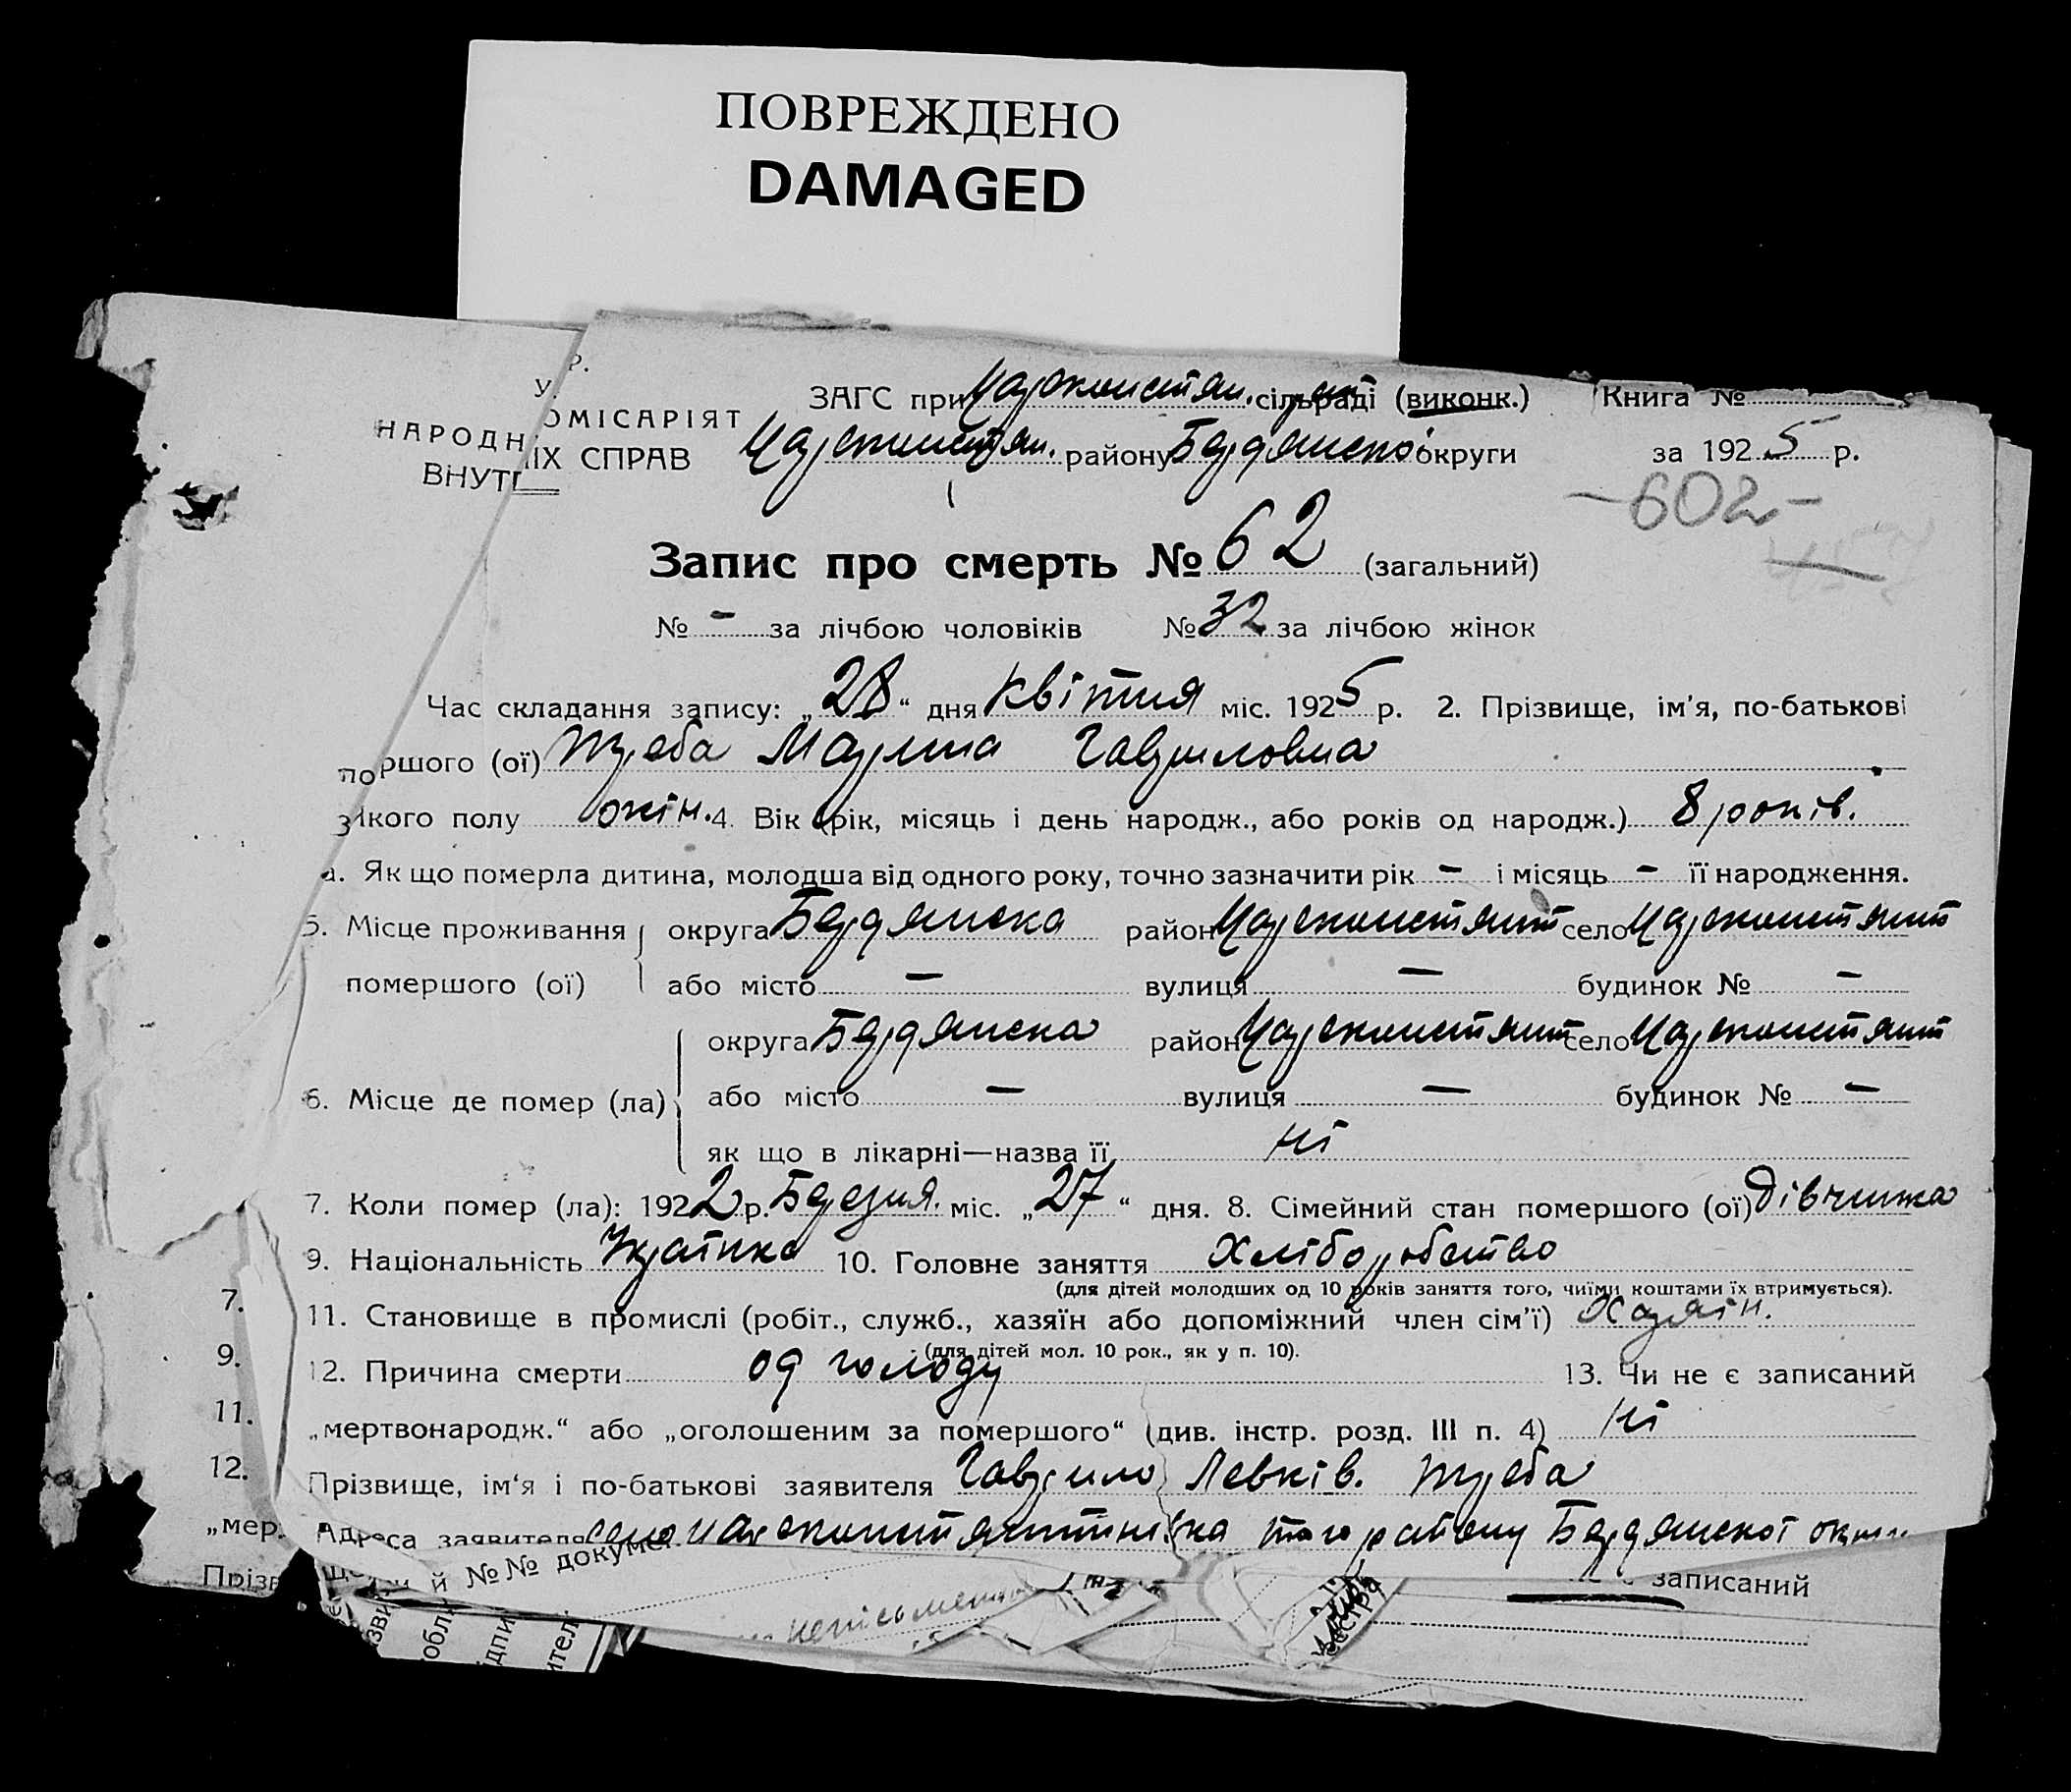 ПОВРЕЖДЕНО
DAMAGED
У. Р.
НАРОДН ОМІСАРІЯТ
ВНУТР ІХ СПРАВ
ЗАГС при Цареконстян. сільраді (виконк.) Книга №
Цареконстян. району Бердянської округи за 1925 р.
-602-
Запис про смерть № 62 (загальний)
№ - за лічбою чоловіків № 32 за лічбою жінок
Час складання запису: „28“ дня Квітня міс. 1925 р. 2. Прізвище, ім'я, по-батькові
поршого (ої) Треба Марина Гавриловна
якого полу жін. 4. Вік (рік, місяць і день народж., або років од народж.) 8 років.
а. Як що померла дитина, молодша від одного року, точно зазначити рік - і місяць - її народження.
5. Місце проживання округа Бердянска район Цареконстянт село Цареконстянт
помершого (ої) або місто - вулиця - будинок № -
округа Бердянска район Цареконстянт село Цареконстянт
6. Місце де помер (ла) або місто - вулиця - будинок № -
як що в лікарні—назва її ні
7. Коли помер (ла): 1922 р. Березня. міс. „27“ дня. 8. Сімейний стан помершого (ої) дівчинка
9. Національність Українка 10. Головне заняття Хліборобство
(для дітей молодших од 10 років заняття того, чиїми коштами їх втримується).
11. Становище в промислі (робіт., служб., хазяїн або допоміжний член сім'ї) Хазяїн.
(для дітей мол. 10 рок., як у п. 10).
12. Причина смерти од голоду 13. Чи не є записаний
„мертвонародж.“ або „оголошеним за помершого“ (див. інстр. розд. III п. 4) ні
Прізвище, ім'я і по-батькові заявителя Гаврило Левків. Треба
Адреса заявителя село Цареконстянтинівка того району Бердянської округи
й №№ докумен
записаний
7.
9.
11.
12.
„мер.
Прізв